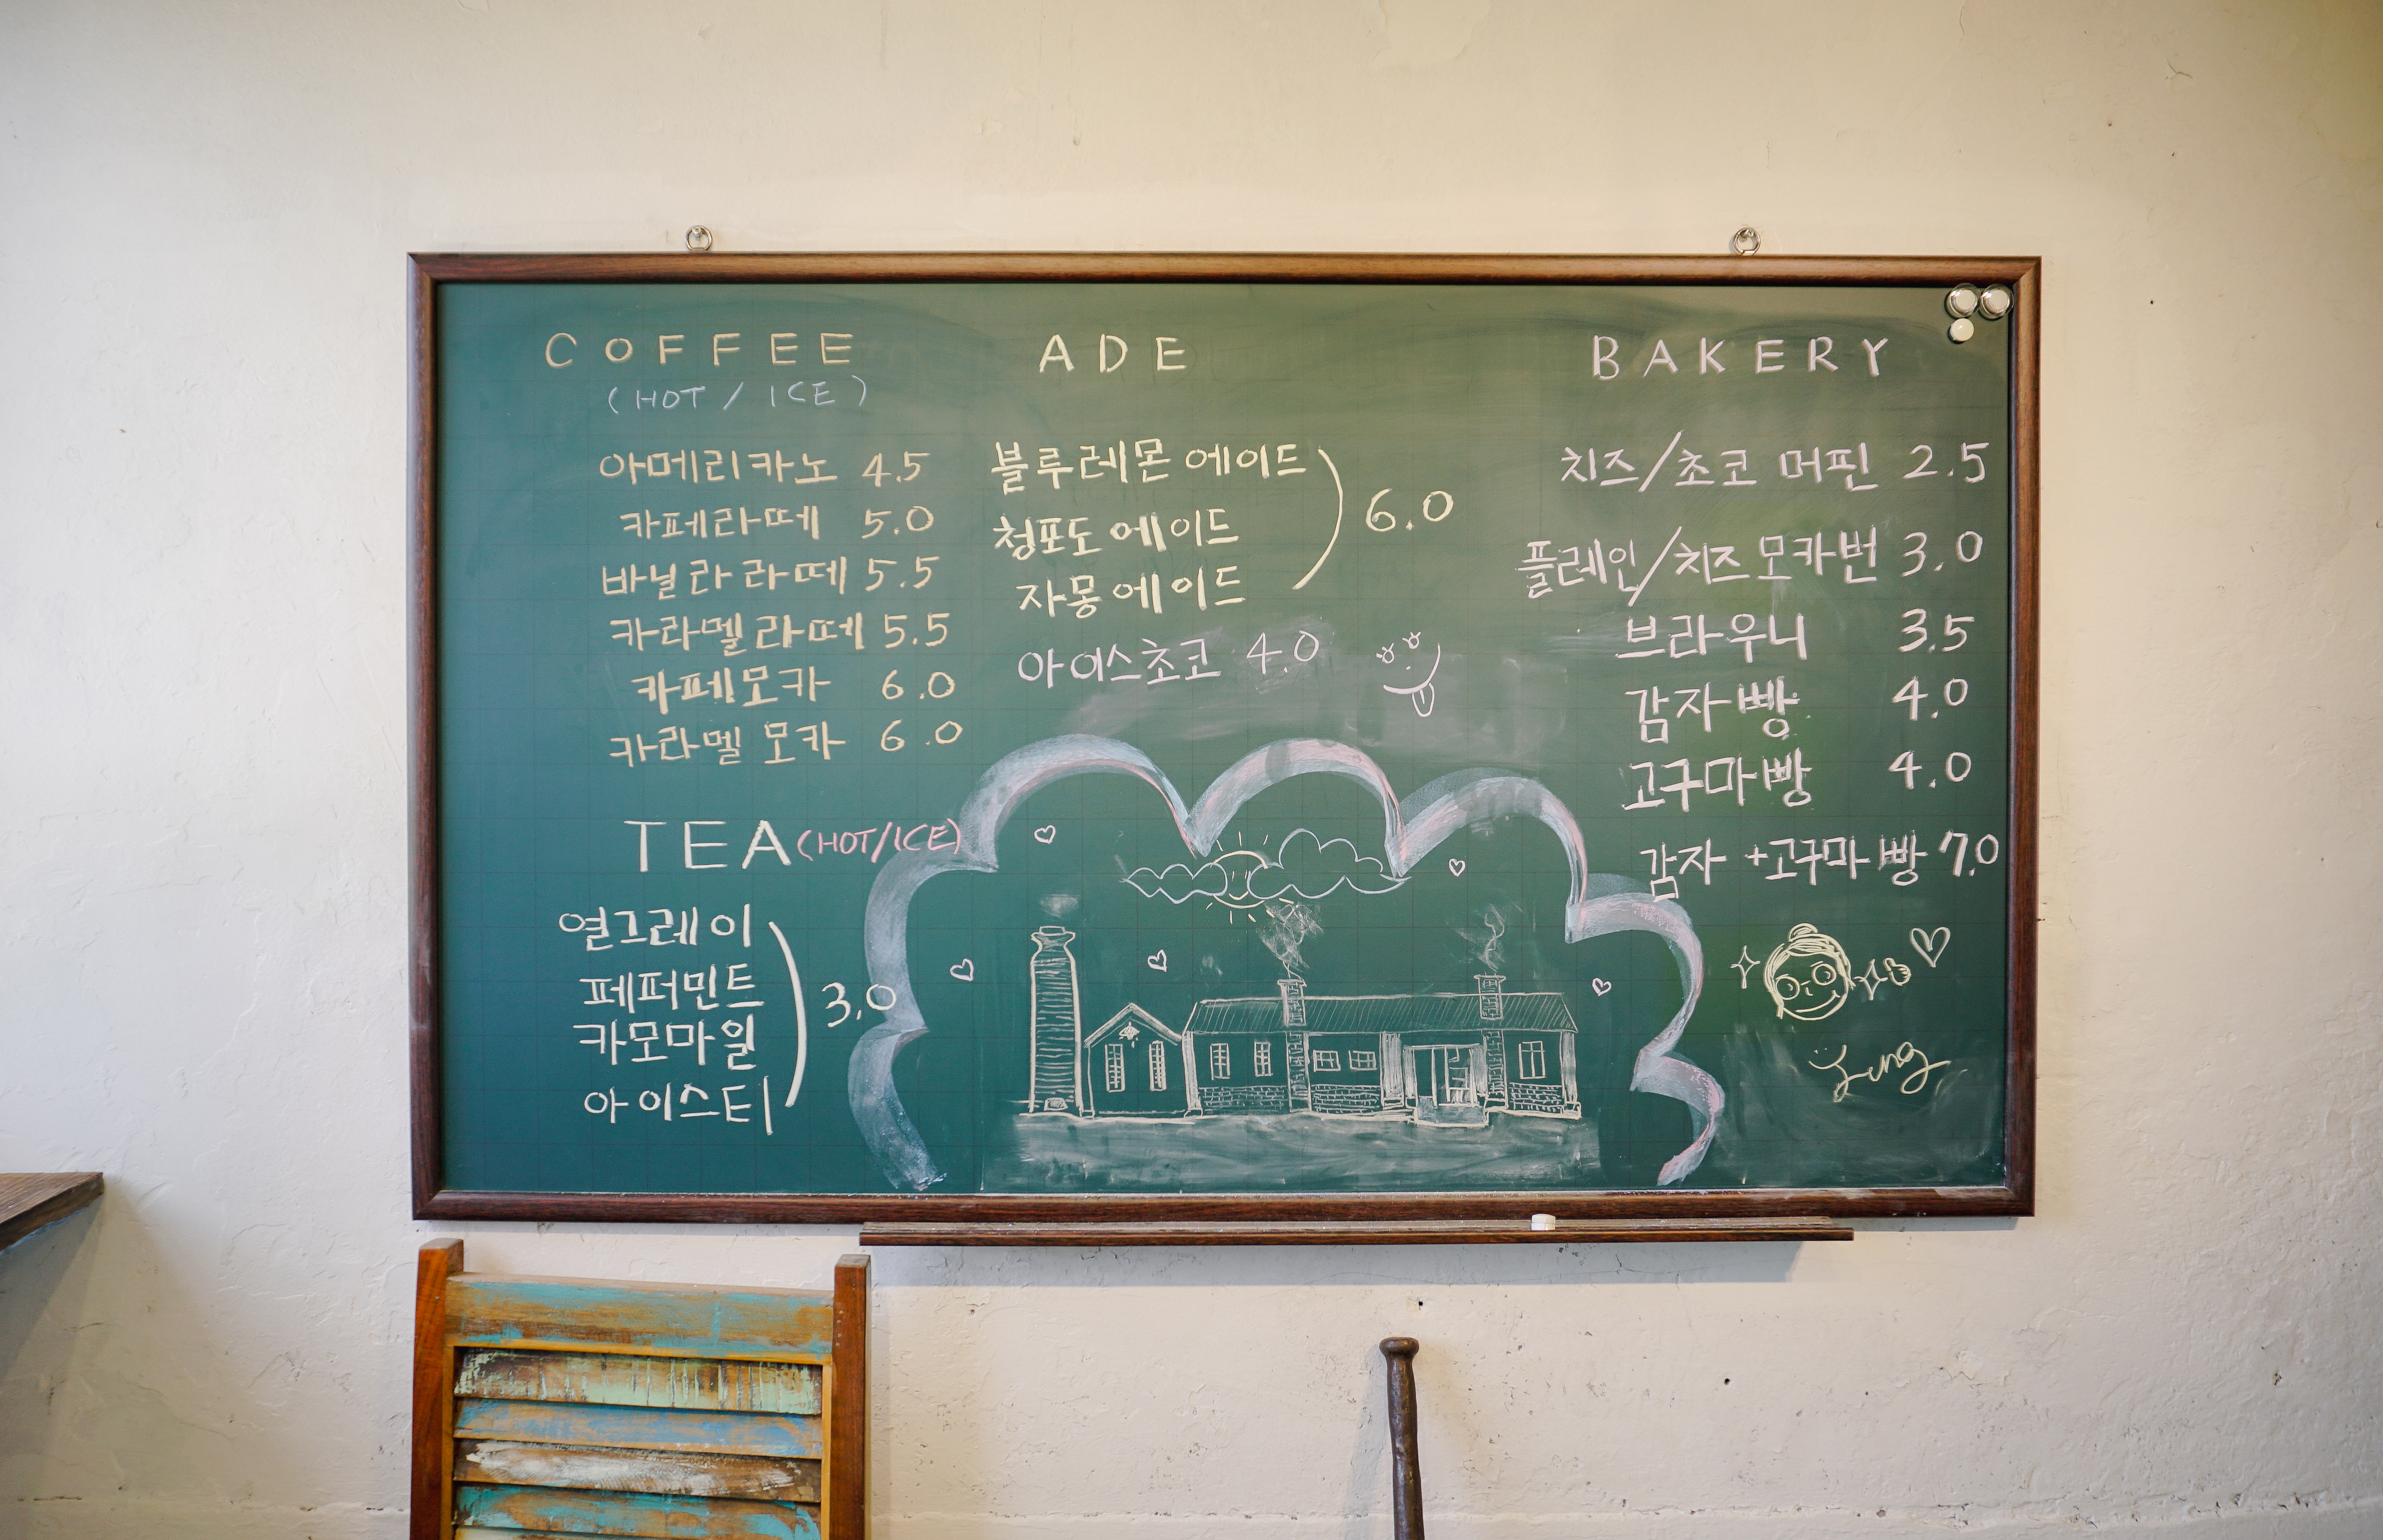 COFFEE
(HOT / ICE)
아메리카노 4.5
카페라떼 5.0
바닐라라떼 5.5
카라멜라떼 5.5
카페모카 6.0
카라멜 모카 6.0
TEA (HOT/ICE)
열그레이
페퍼민트
카모마일
아이스티
3.0
ADE
블루레몬 에이드
청포도 에이드
자몽에이드
6.0
아이스초코 4.0
BAKERY
치즈/초코 머핀 2.5
플레인/치즈모카번 3.0
브라우니 3.5
감자빵 4.0
고구마빵 4.0
감자+고구마빵 7.0